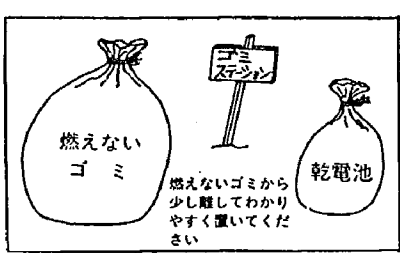 燃えない
ゴミ
ゴミ
ステーション
乾電池
燃えないゴミから
少し離してわかり
やすく置いてくだ
さい